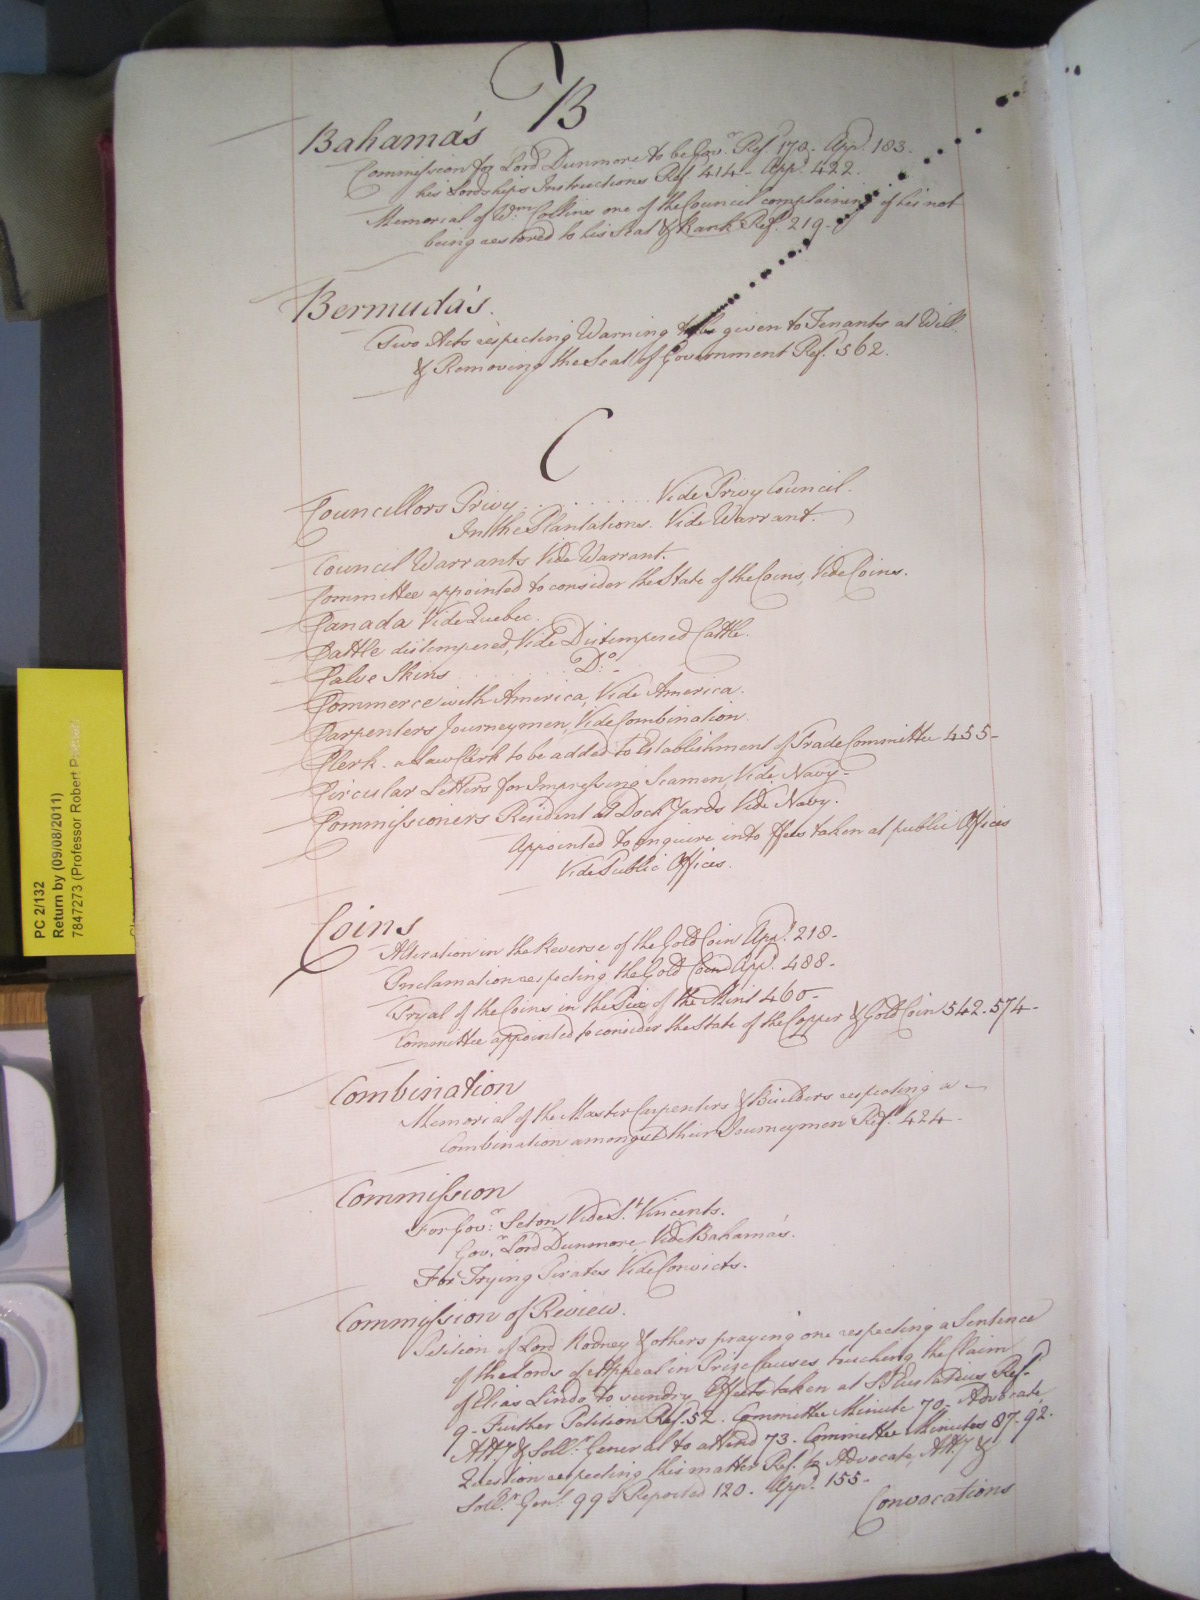 B
Bahama's
Commission for Lord Dunmore to be Govr. Ref. 178. Appd. 183.
his Lordships Instructions Ref. 414 - Appd. 422.
Memorial of Wm. Collins one of the Council complaining of his not
being restored to his Seat & Rank Ref. 219.
Bermuda's.
Two Acts respecting Warning to be given to Tenants at Will.
& Removing the Seat of Government Ref. 562.
C
Councillors Privy . . . . . . . . Vide Privy Council.
In the Plantations. Vide Warrant.
Council Warrants Vide Warrant.
Committee appointed to consider the State of the Coins, Vide Coins.
Canada Vide Quebec.
Cattle distempered, Vide Distempered Cattle.
Calve Skins . . . . . . . . Do. -
Commerce with America, Vide America.
Carpenters Journeymen, Vide Combination.
Clerk. a Law Clerk to be added to Establishment of Trade Committee 455-
Circular Letters for Impressing Seamen, Vide, Navy-
Commissioners Resident at Dock Yards Vide Navy.
Appointed to enquire into ffees taken at public Offices
Vide Public Offices.
Coins
Alteration in the Reverse of the Gold Coin Appd. 218-
Proclamation respecting the Gold Coin Appd. 488-
Tryal of the Coins in the Pix of the Mint 460-
Committee appointed to consider the State of the Copper & Gold Coin 542-574-
Combination
Memorial of the Master Carpenters & Builders respecting a
Combination amongst their Journeymen Refd. 424-
Commission
For Govr. Seton Vide St. Vincents.
Govr. Lord Dunmore, Vide Bahama's.
For Trying Pirates Vide Convicts.
Commission of Review.
Petition of Lord Rodney & others praying one respecting a Sentence
of the Lords of Appeal in Prize Causes touching the Claim
of Elias Lindo to sundry Effects taken at St. Eustatius Ref.
9- Further Petition Ref. 52. Committee Minute 70- Advocate,
Atty & Sollr. General to attend 73. Committee Minutes 87-92.
Question respecting this matter Ref. to Advocate, Atty &
Sollr. Genl. 99 & Reported 120. Appd. 155-
Convocations
PC 2/132
Return by (09/08/2011)
7847273 (Professor Robert